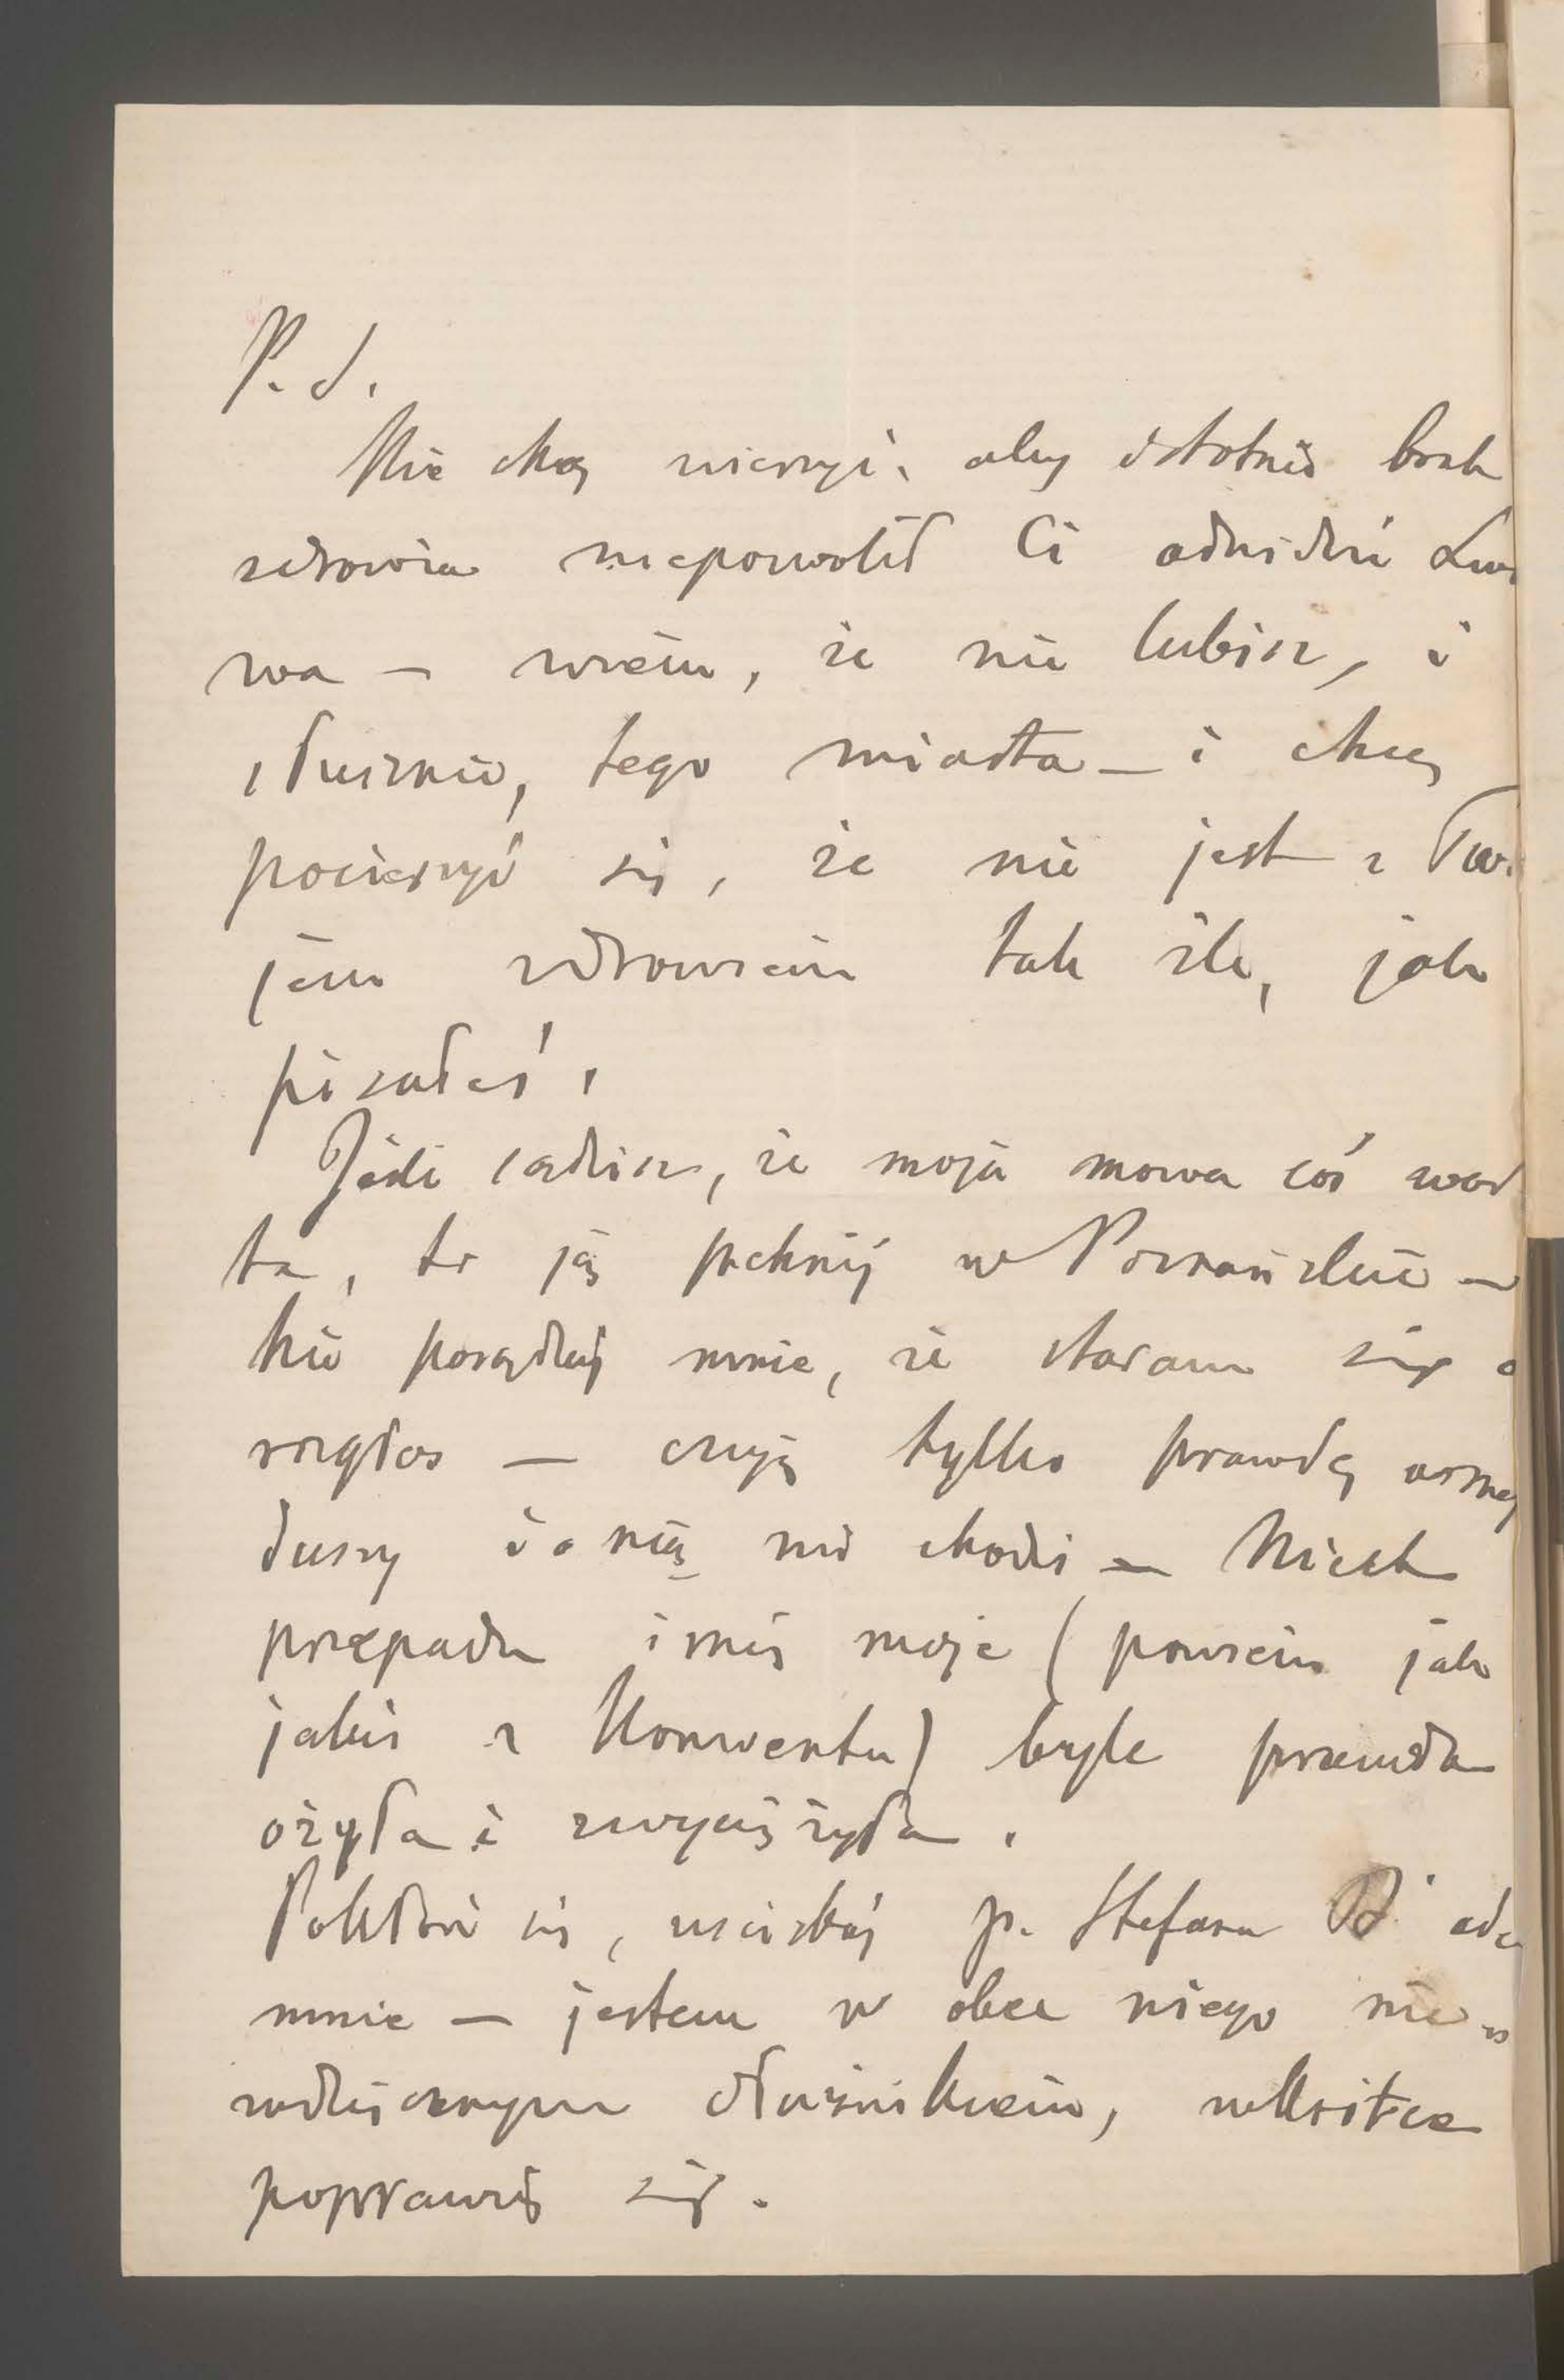 P. S.
Nie chcę wierzyć, aby istotnie brak
zdrowia niepozwolił Ci odwidzić Lwo
wa — wiem, że nie lubisz, i
słusznie, tego miasta — i chcę
pocieszyć się, że nie jest z Two
jem zdrowiem tak źle, jak
pisałeś.
Jeśli sądzisz, że moja mowa coś war
ta, to ją pchnij w Poznańskie —
Nie posądzaj mnie, że staram się o
rozgłos — czuję tylko prawdę w mej
duszy i o nią mi chodzi — Niech
przepada imię moje (powiem jak
jakiś z Konwentu) byle prawda
ożyła i zwyciężyła.
Pokłoń się, uściskaj p. Stefana B ode
mnie — jestem w obec niego nie
wdzięcznym dłużnikiem, wkrótce
poprawię się.